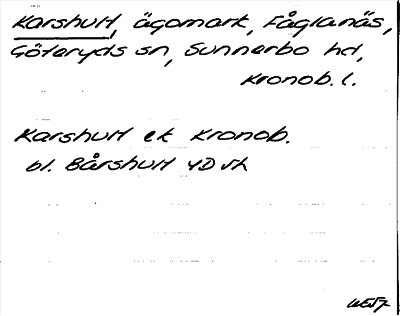 Karshult, ägomark, Fåglanäs,
Göteryds sn, Sunnerbo hd,
Kronob. l.
Karshult ek Kronob.
bl. Bårshult 4D sh